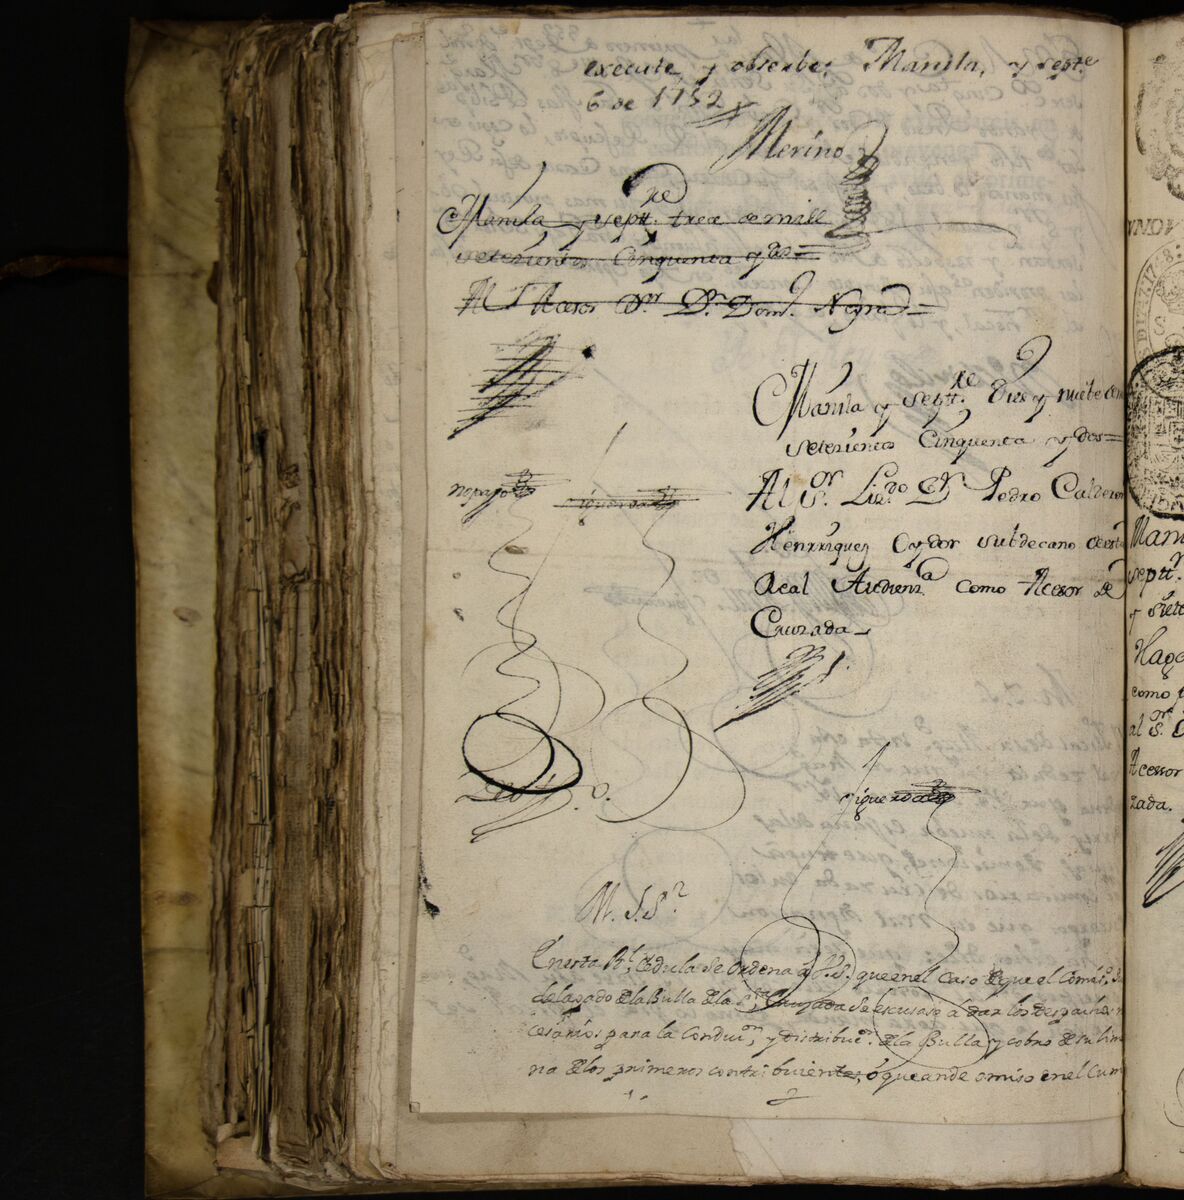 execute y observe: Manila, y septe
6 de 1752
Merino
Manila y septtre trece de mill
setezientos Cinquenta y dos=
Al Sr Acesor Dor Dn Domo Negrd=
Manila y septtre Diez y nuebe de mil
setezientos Cinquenta y dos=
Al Sor Lizdo Dn Pedro Calderon
nopago
Henrriquez Oydor subdecano de esta
Real Audienza como Acesor de
Cruzada
Figueroa
M. I. Sr
En esta Rl Cedula se ordena á V.S. que en el caso de que el Comiso Su
delagado de la Bulla de la Sta Cruzada se escusase á dar los despachos n
cesarios para la conduzon, y distribuzn de la Bulla y cobro de su lim
na de los primeros contribuientes, ó que ande omiso en el Cum
NOM
Mani
septtr
y siete
Haga
como
al Sor D
Acessor
zada.